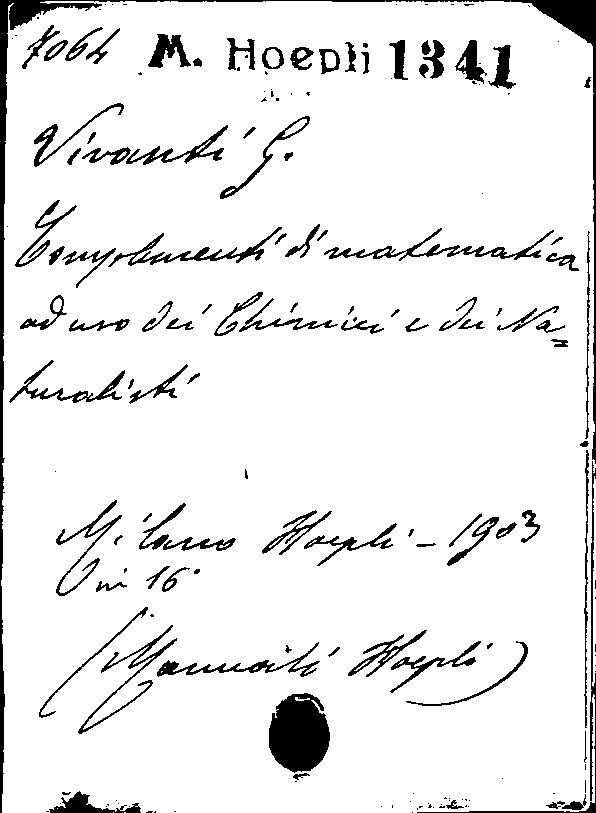 7064 M. Hoepli 1341
Vivanti G.
Complementi di matematica
ad uso dei Chimici e dei Na=
turalisti
Milano Hoepli - 1903
in 16°
(Manuali Hoepli)